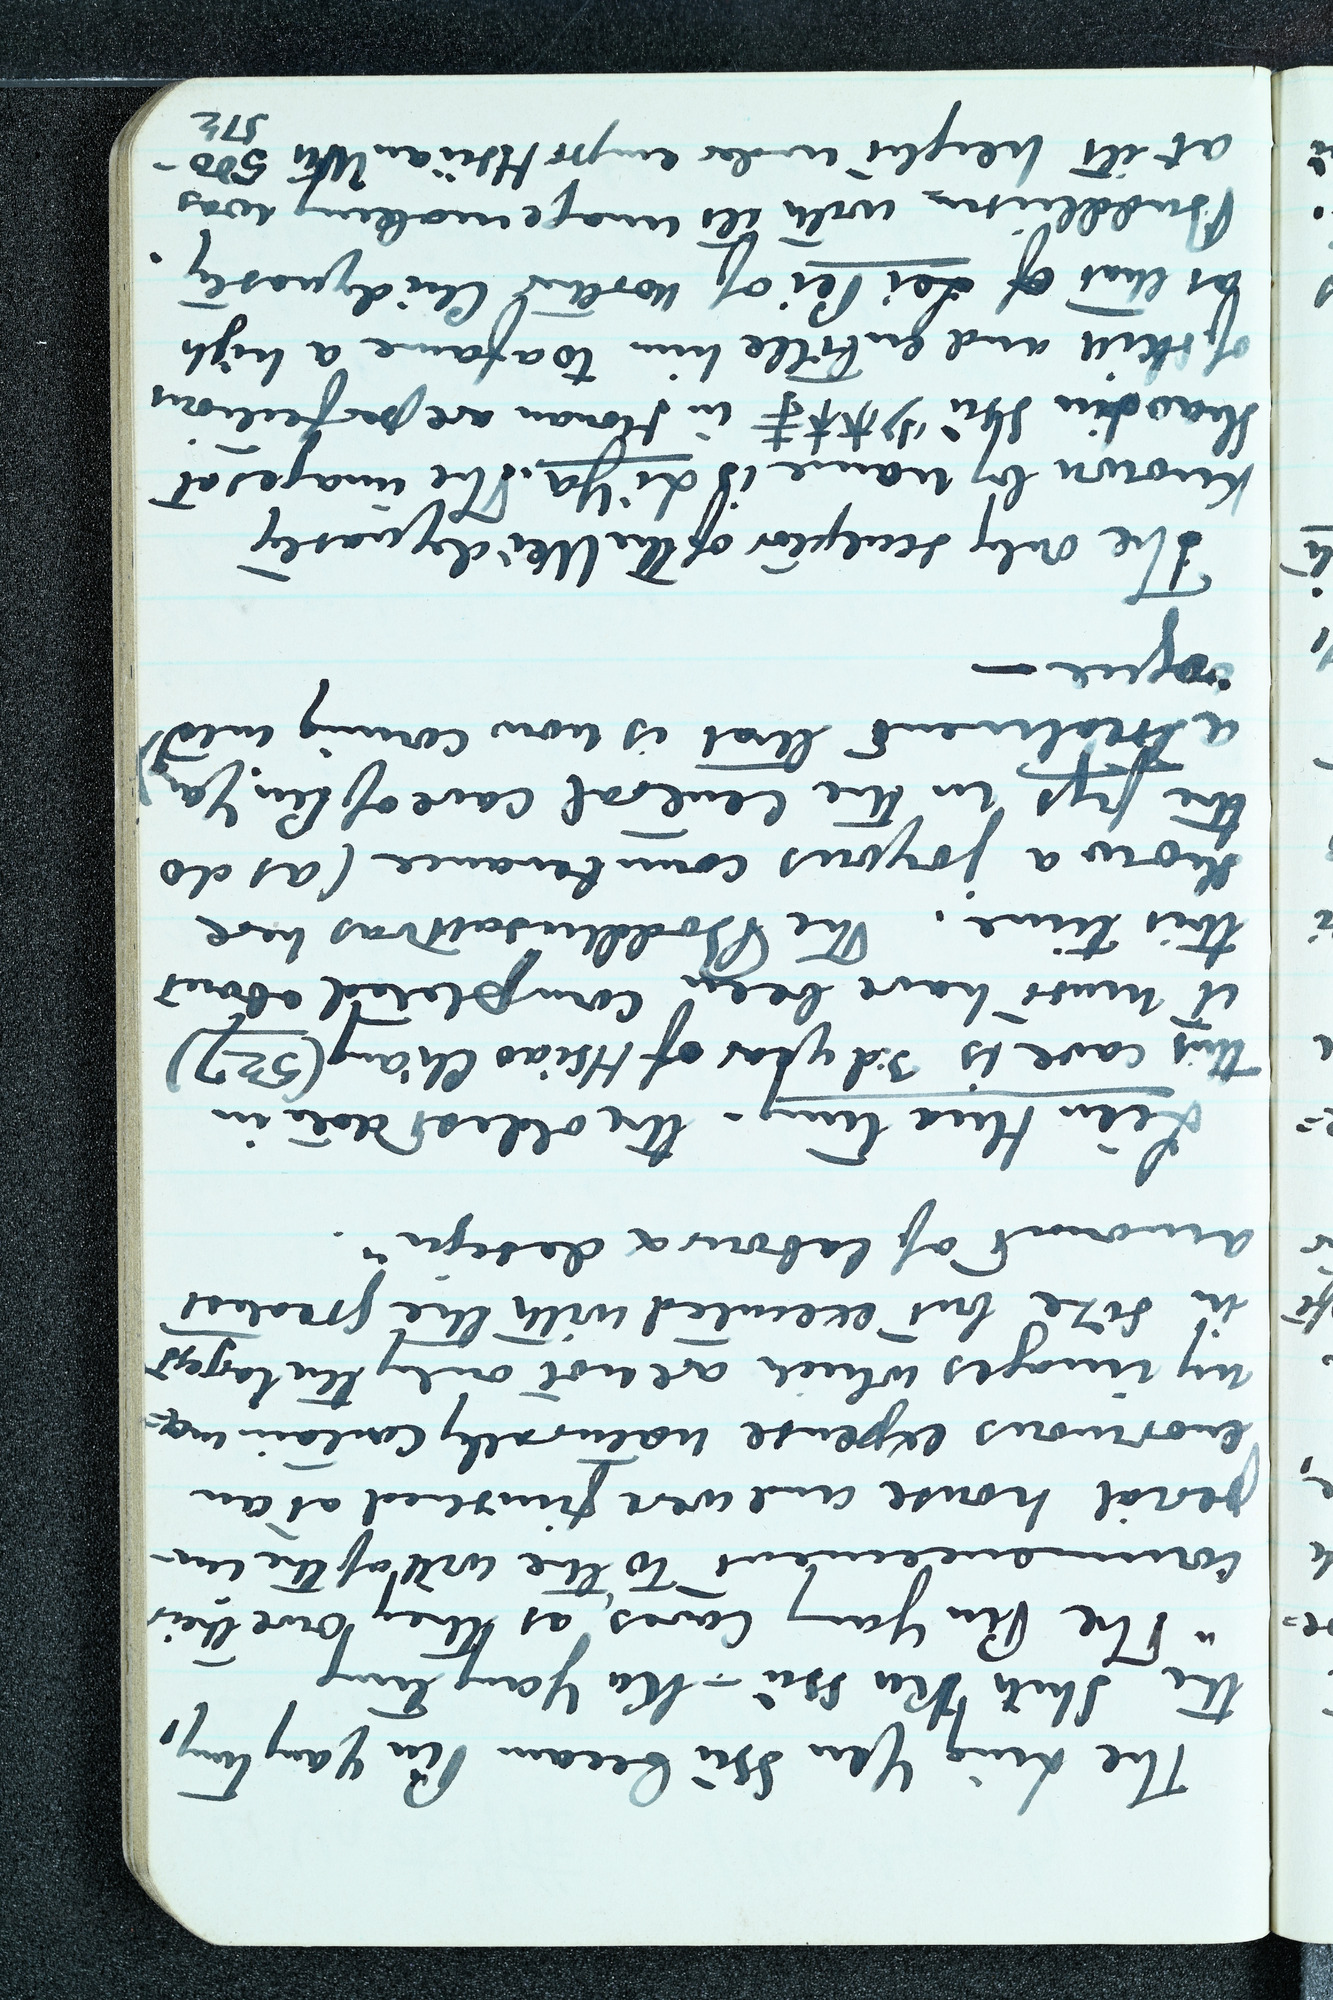 The Ling Yen Ssŭ became Pin Yang tung,
the Shih K'u Ssŭ — Ku Yang tung
"The Pin Yang Caves, as they owe their
commencement to the will of the im-
perial house and were finished at an
enormous expense naturally contain ma-
ny images which are not only the largest
in size but executed with the greatest
amount of labour & design".
Lien Hua tung - the oldest date in
this cave is 3d year of Hsiao Ch'ang (527)
it must have been completed about
this time. The Boddhisattvas here
show a joyous countenance (as do
the figs in the central cave of Pin Yang)
a treatment that is now coming into
vogue —
The only sculptor of the Wei dynasty
known by name is Li Ya. The images at
Shao lin Ssŭ 少林寺 in Honan are perfections
of skill and entitle him to a fame as high
as that of Lei Pei of northern Chi dynasty.
Buddhism with its image making was
at its height under empr Hsüan Wu 500-
512